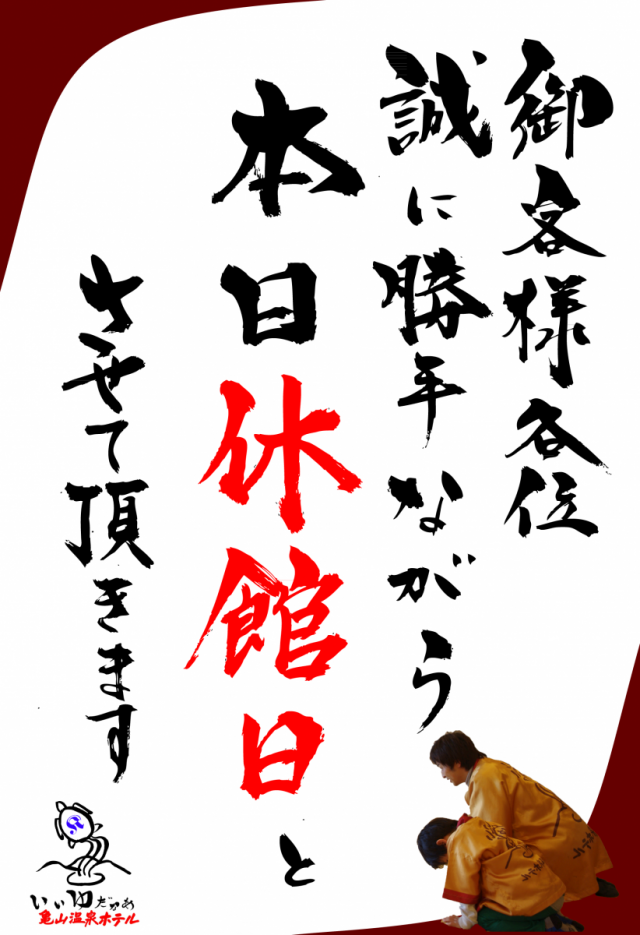 御客様各位
誠に勝手ながら
本日休館日と
させて頂きます
いいゆだなあ
亀山温泉ホテル